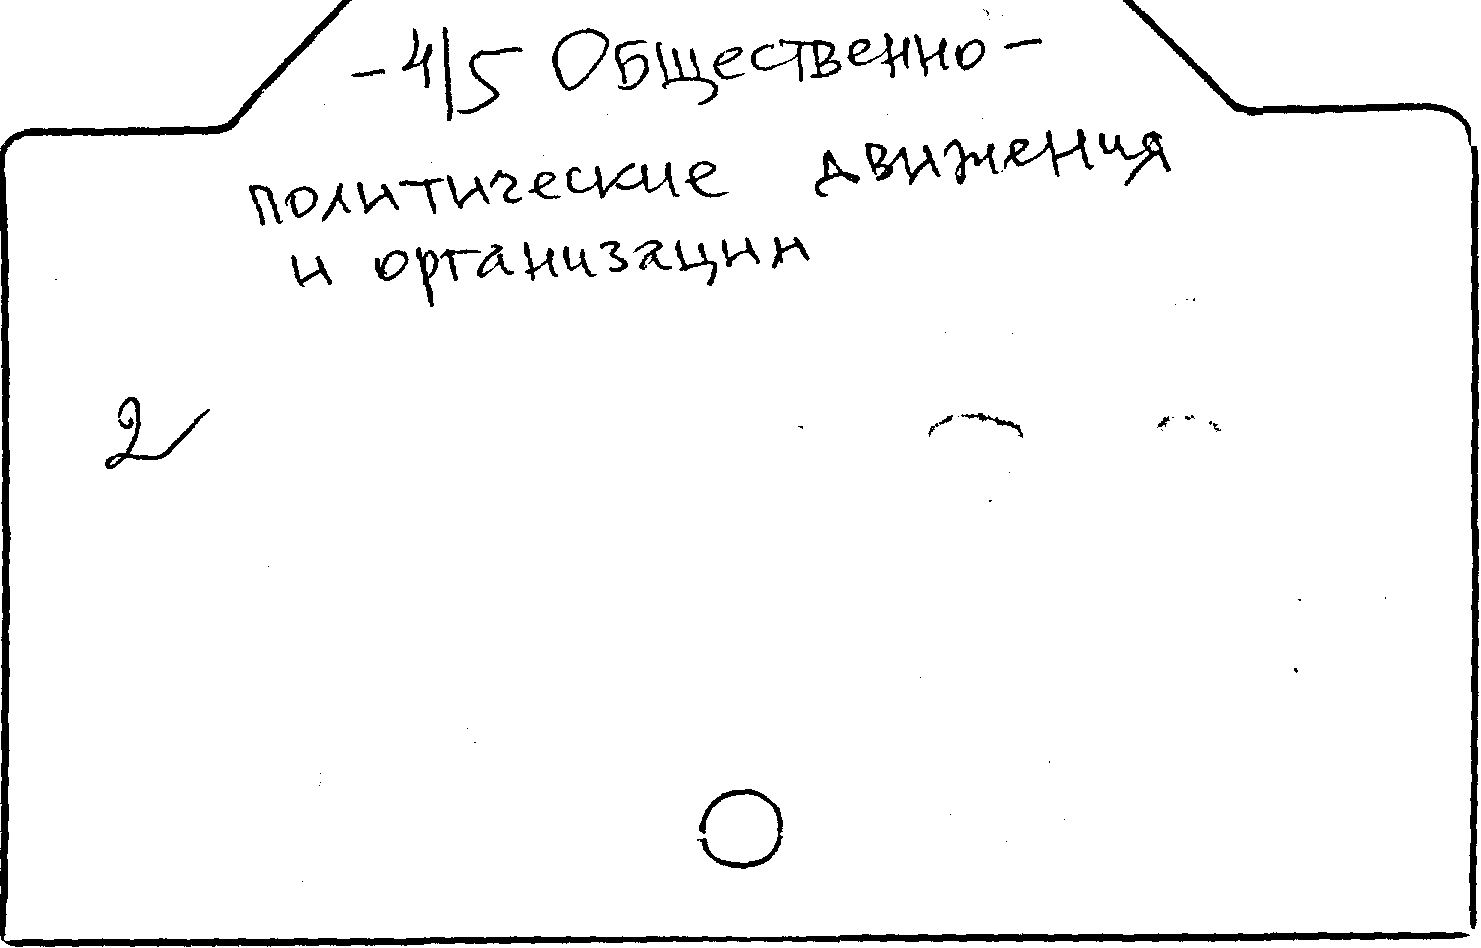 -4/5 Общественно-
политические движения
и организации
2